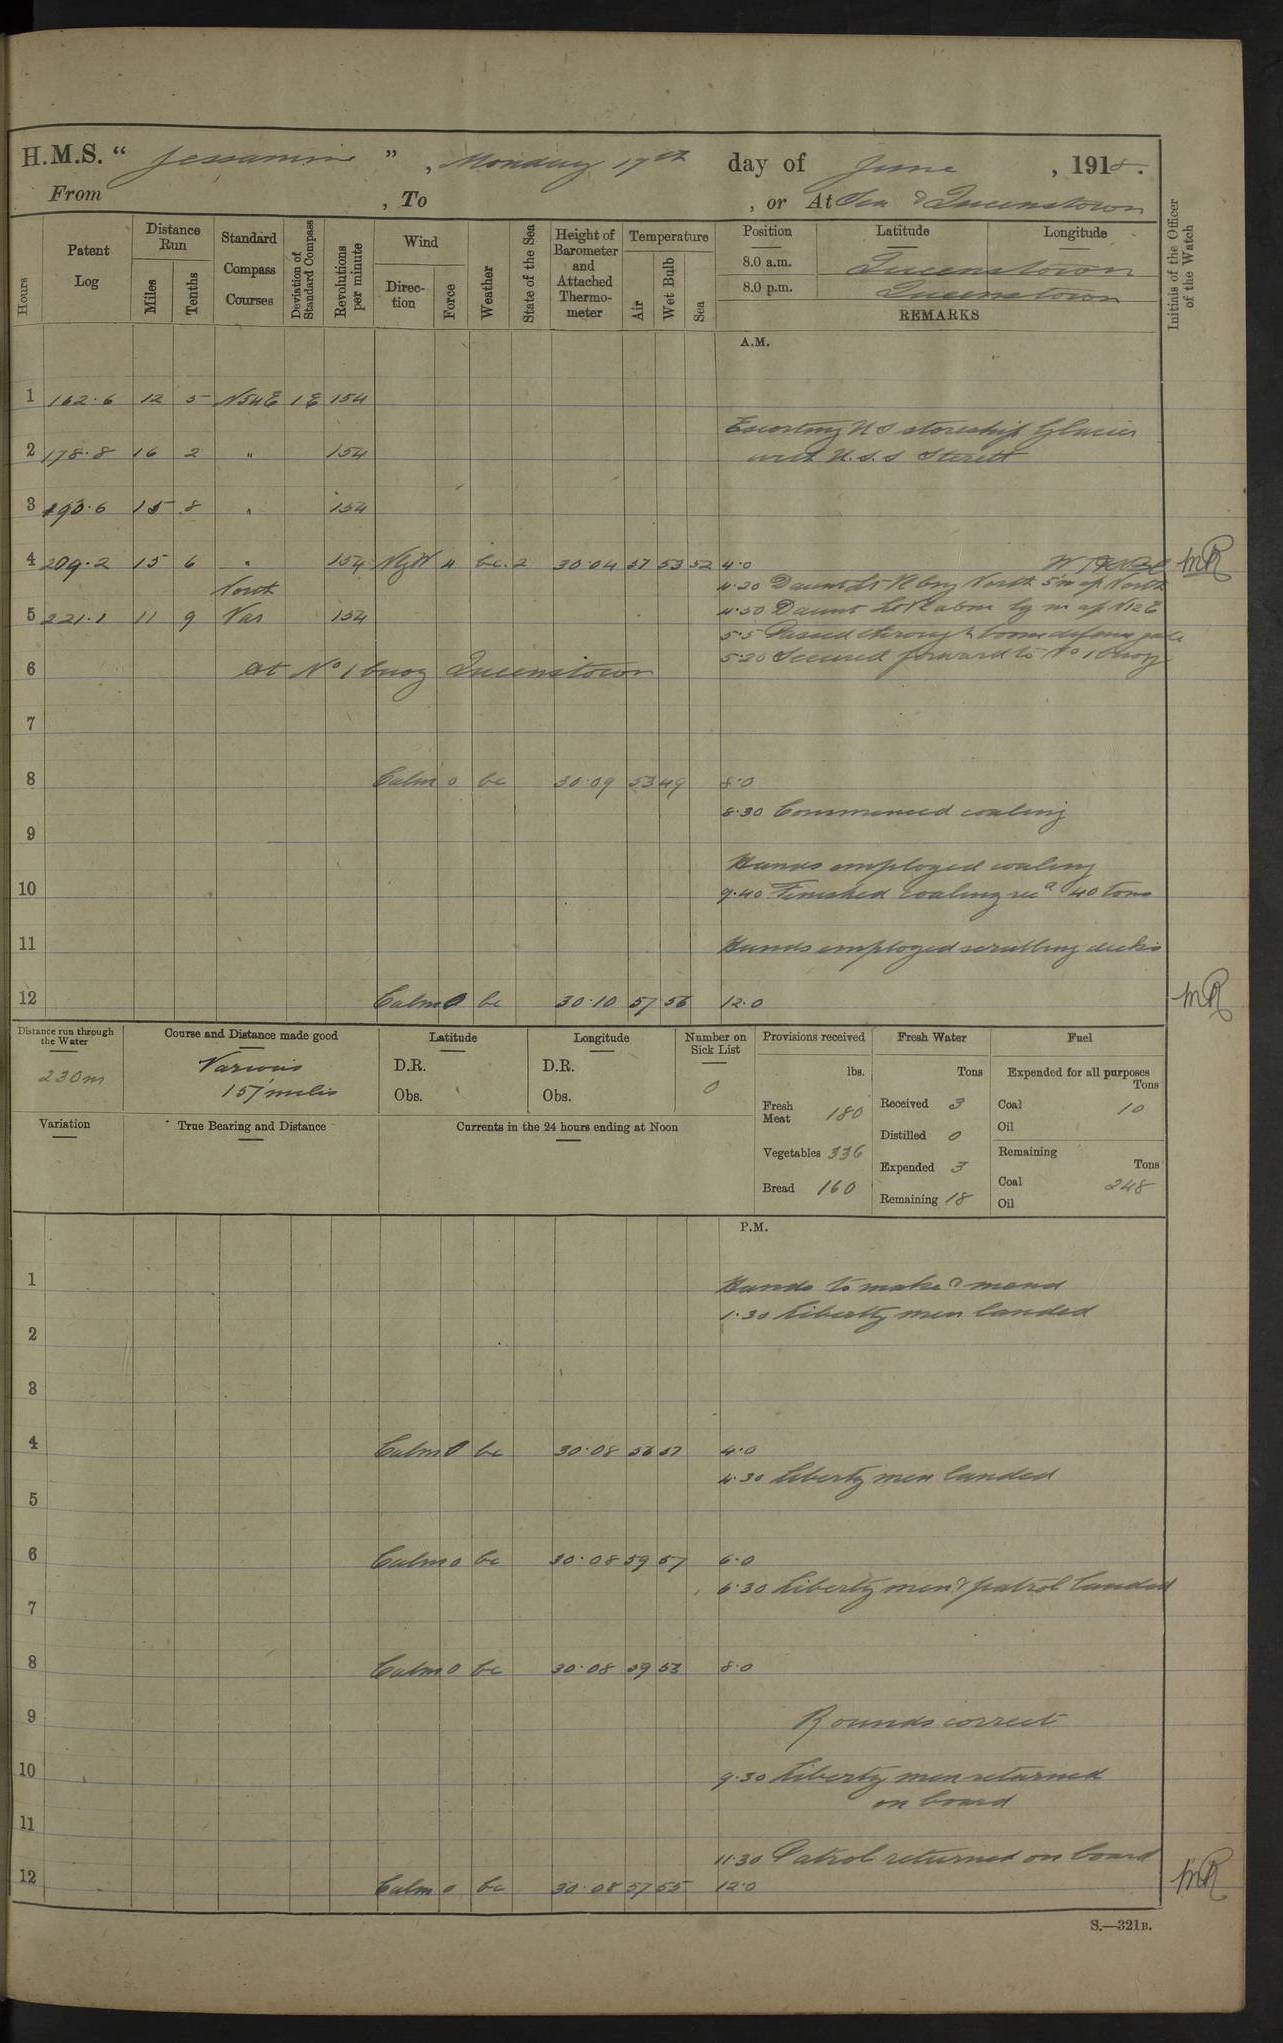 H.M.S. " Jessamine " , Monday 17th day of June , 1918.
From , To , or At Sea & Queenstown
Hours
Patent Log
Distance Run
Miles
Tenths
Standard Compass Courses
Deviation of Standard Compass
Revolutions per minute
Wind
Direction
Force
Weather
State of the Sea
Height of Barometer and Attached Thermometer
Temperature
Air
Wet Bulb
Sea
Position Latitude Longitude
8.0 a.m. Queenstown
8.0 p.m. Queenstown
REMARKS
Initials of the Officer of the Watch
A.M.
1 162.6 12 5 N54E 1E 154
Escorting US storeship Glacier
2 178.8 16 2 " 154 with U.S.S Sterett
3 193.6 15 8 " 154
4 209.2 15 6 " 154 NbyW 4 bc. 2 30.04 57 53 52 4.0 MR
North 4.20 Daunt Lt V brg North 5m a/c North
5 221.1 11 9 Var 154 4.50 Daunt Lt V abm a/c N12E
5.5 Passed through boom defence gate
5.20 Secured forward to No 1 buoy
6 At No 1 buoy Queenstown
7
8 Calm 0 bc 30.09 53 49 8.0
8.30 Commenced coaling
9
Hands employed coaling
10 9.40 Finished coaling recd 40 tons
11 Hands employed scrubbing decks
12 Calm 0 bc 30.10 57 56 12.0 MR
Distance run through the Water
230m
Course and Distance made good
Various
157 miles
Latitude
D.R.
Obs.
Longitude
D.R.
Obs.
Number on Sick List
0
Provisions received
lbs.
Fresh Meat 180
Vegetables 336
Bread 160
Fresh Water
Tons
Received 3
Distilled 0
Expended 3
Remaining 18
Fuel
Expended for all purposes
Tons
Coal 10
Oil
Remaining
Tons
Coal 248
Oil
Variation
True Bearing and Distance
Currents in the 24 hours ending at Noon
P.M.
1 Hands to make & mend
1.30 Liberty men landed
2
3
4 Calm 0 bc 30.08 56 57 4.0
4.30 Liberty men landed
5
6 Calm 0 bc 30.08 59 57 6.0
6.30 Liberty men & patrol landed
7
8 Calm 0 bc 30.08 59 53 8.0
9 Rounds correct
10 9.30 Liberty men returned
on board
11
11.30 Patrol returned on board
12 Calm 0 bc 30.08 57 55 12.0 MR
S.—321B.